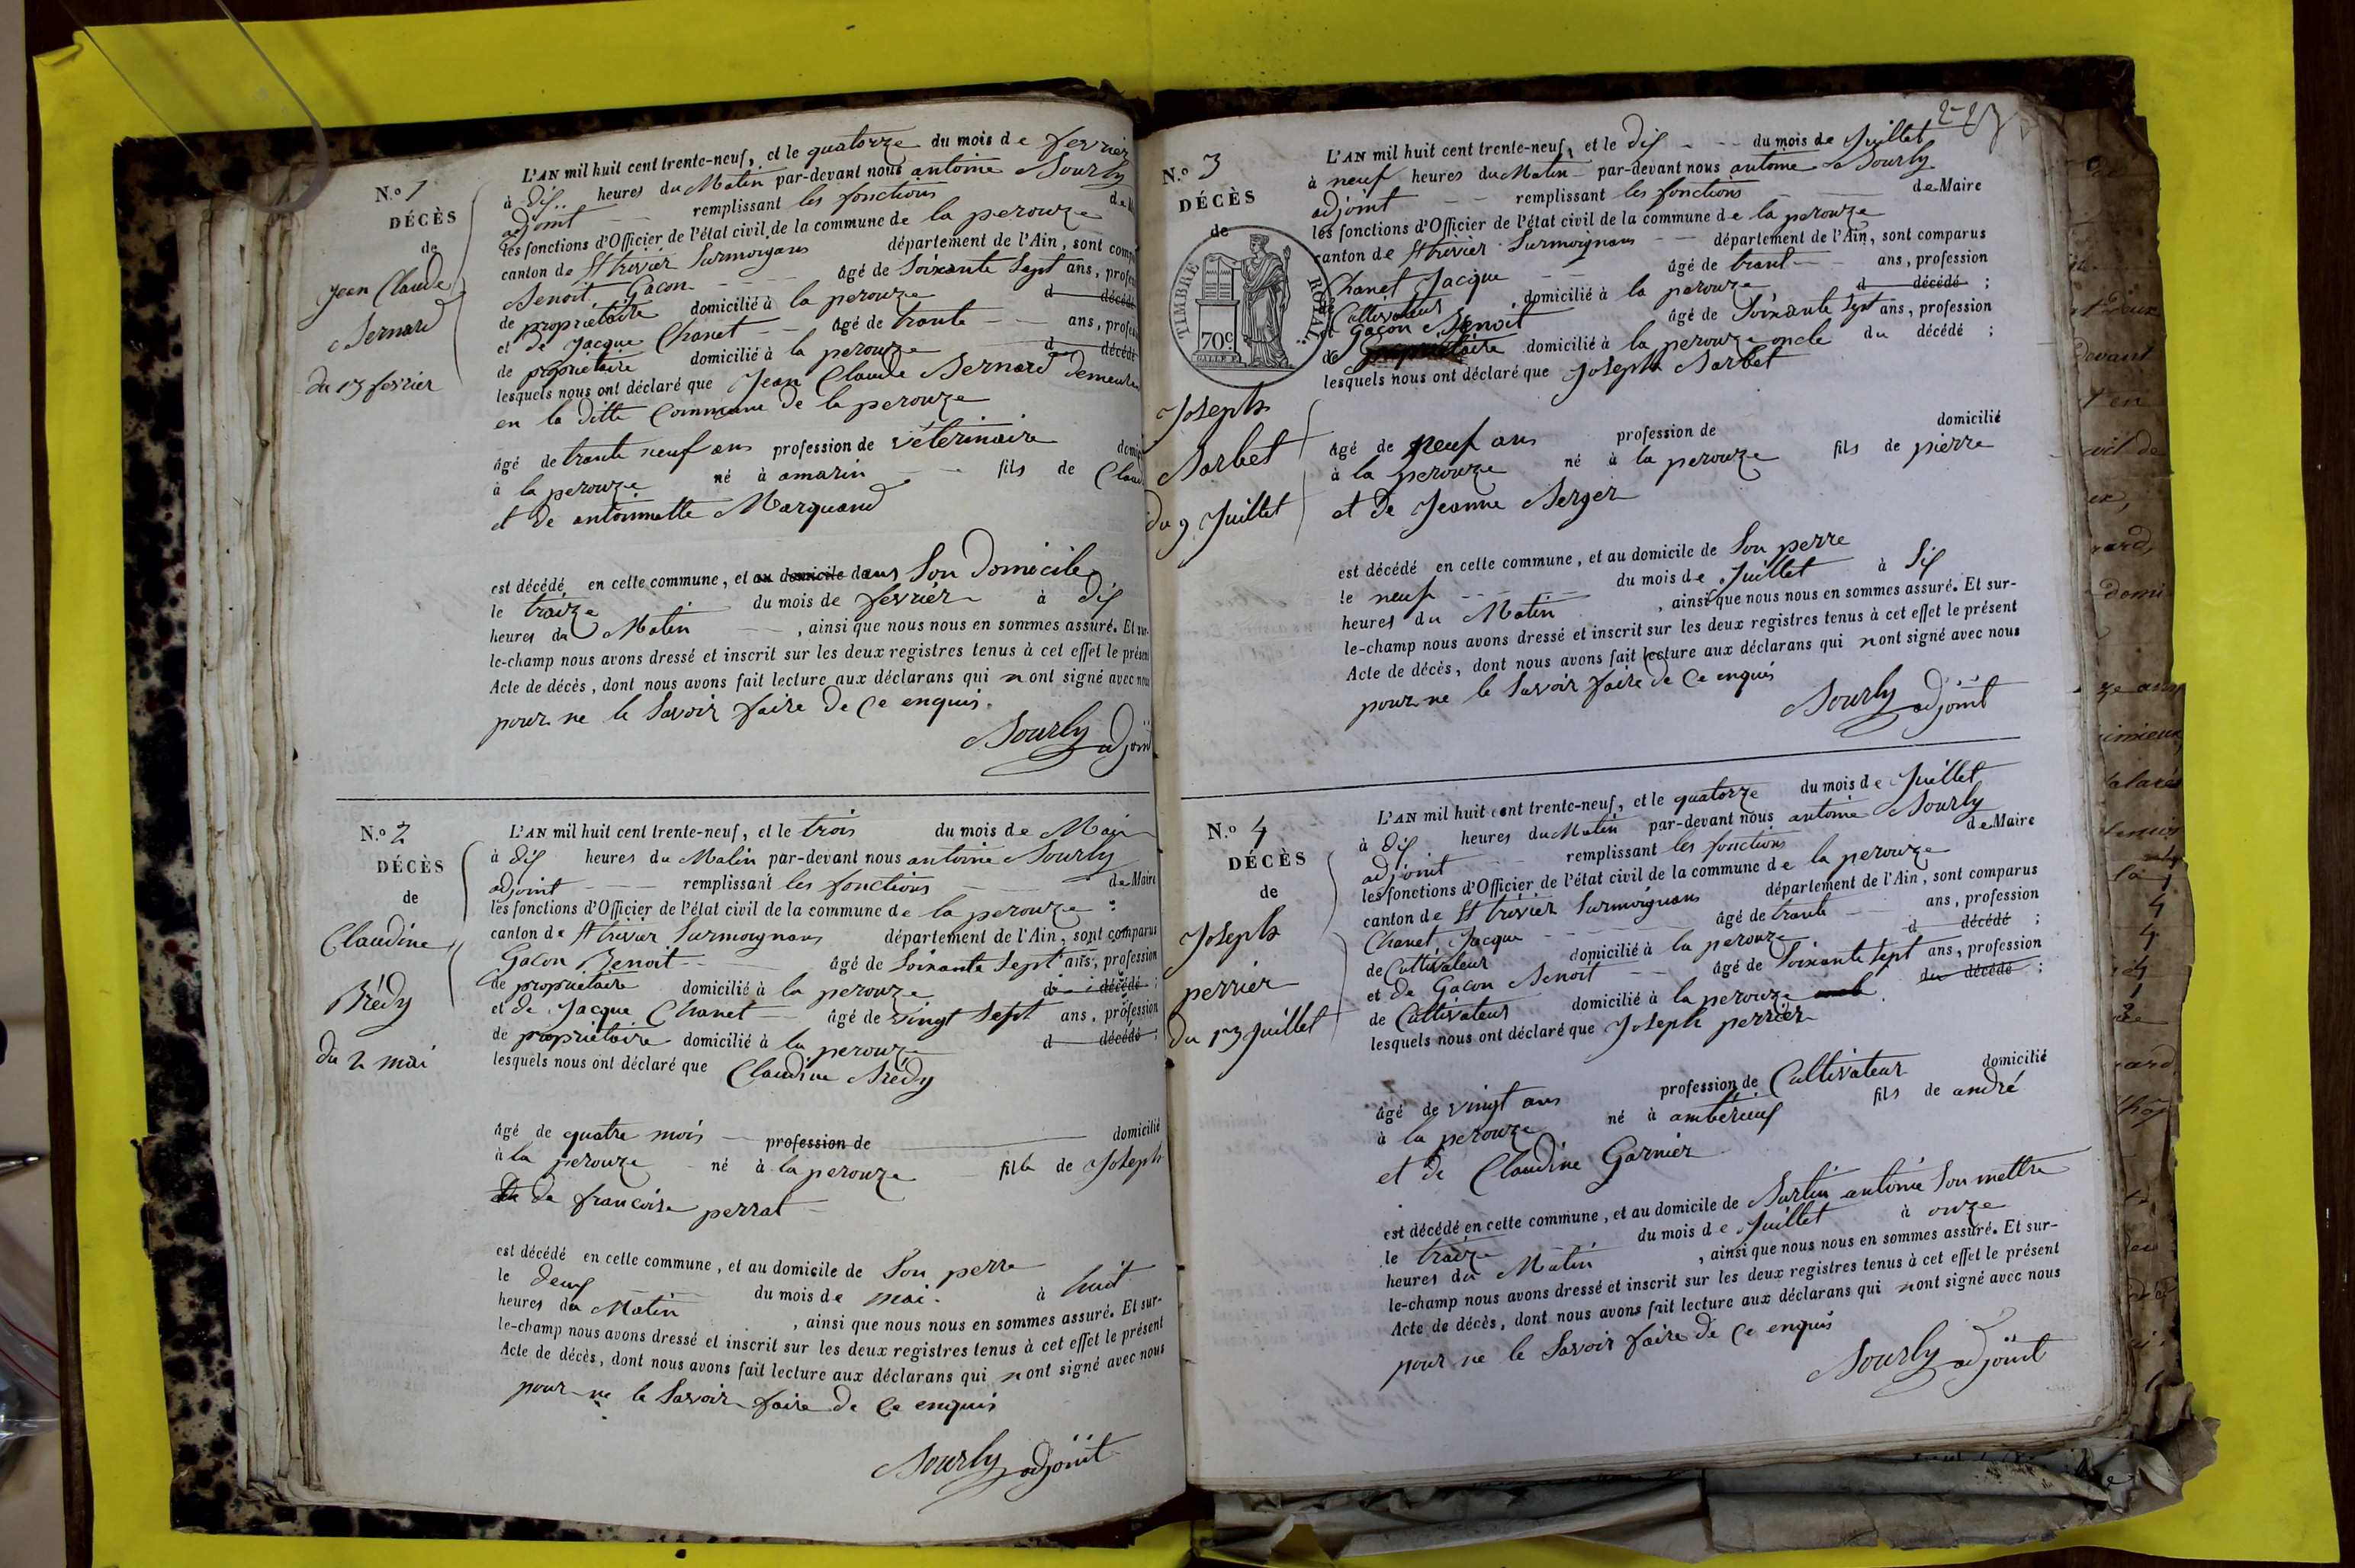 N.º 1
DÉCÈS
de
Jean Claude
Bernard
du 13 fevrier
L'AN mil huit cent trente-neuf, et le quatorze du mois de fevrier
à dix heures du Matin par-devant nous antoine Bourly
adjoint remplissant les fonctions
les fonctions d'Officier de l'état civil de la commune de la perouze
canton de St trivier Surmoignans département de l'Ain, sont
Benoit Gacon âgé de Soixante Sept ans,
de propriétaire domicilié à la perouze d décédé
et de Jacque Chanet âgé de trante ans,
de propriétaire domicilié à la perouze d décédé
lesquels nous ont déclaré que Jean Claude Bernard
en la ditte Commune de la perouze
âgé de trante neuf ans profession de véterinaire
à la perouze né à amarin fils de
et de antoinnette Marquand
est décédé en celle commune, et au domicile dans Son Domicile
le traize du mois de fevrier à dix
heures du Matin, ainsi que nous nous en sommes assuré. Et sur-
le-champ nous avons dressé et inscrit sur les deux registres tenus à cet effet le présent
Acte de décès, dont nous avons fait lecture aux déclarans qui n ont signé avec nous
pour ne le Savoir faire de Ce enquis.
Bourly adjoint
N.º 2
DÉCÈS
de
Claudine
Brédy
du 2 mai
L'AN mil huit cent trente-neuf, et le trois du mois de Mai
à dix heures du Matin par-devant nous antoine Bourly
adjoint remplissant les fonctions de Maire
les fonctions d'Officier de l'état civil de la commune de la perouze
canton de St trivier Surmoignans département de l'Ain, sont comparus
Gacon Benoit âgé de Soixante Sept ans, profession
de propriétaire domicilié à la perouze d décédé ;
et de Jacque Chanet âgé de vingt Sept ans, profession
de propriétaire domicilié à la perouze d décédé ;
lesquels nous ont déclaré que Claudine Brédy
âgé de quatre mois profession de domicilié
à la perouze né à la perouze fille de Joseph
de francoise perrat
est décédé en celle commune, et au domicile de Son perre
le deux du mois de mai à huit
heures du Matin, ainsi que nous nous en sommes assuré. Et sur-
le-champ nous avons dressé et inscrit sur les deux registres tenus à cet effet le présent
Acte de décès, dont nous avons fait lecture aux déclarans qui n ont signé avec nous
pour ne le Savoir faire de Ce enquis
Bourly adjoint
N.º 3
DÉCÈS
de
TIMBRE ROYAL
70c
Joseph
Barbet
du 9 Juillet
L'AN mil huit cent trente-neuf, et le dix du mois de Juillet
à neuf heures du Matin par-devant nous antoine Bourly
adjoint remplissant les fonctions de Maire
les fonctions d'Officier de l'état civil de la commune de la perouze
canton de St trivier Surmoignans département de l'Ain, sont comparus
Chanet Jacque âgé de trant ans, profession
Cultivateur domicilié à la perouze d décédé ;
et Gacon Benoit âgé de Soixante Sept ans, profession
de propriétaire domicilié à la perouze oncle du décédé ;
lesquels nous ont déclaré que Joseph Barbet
âgé de neuf ans profession de domicilié
à la perouze né à la perouze fils de pierre
et de Jeanne Berger
est décédé en celle commune, et au domicile de Son perre
le neuf du mois de Juillet à Six
heures du Matin, ainsi que nous nous en sommes assuré. Et sur-
le-champ nous avons dressé et inscrit sur les deux registres tenus à cet effet le présent
Acte de décès, dont nous avons fait lecture aux déclarans qui n ont signé avec nous
pour ne le Savoir faire de Ce enquis
Bourly adjoint
N.º 4
DÉCÈS
de
Joseph
perrier
du 13 Juillet
L'AN mil huit cent trente-neuf, et le quatorze du mois de Juillet
à dix heures du Matin par-devant nous antoine Bourly
adjoint remplissant les fonctions de Maire
les fonctions d'Officier de l'état civil de la commune de la perouze
canton de St trivier Surmoignans département de l'Ain, sont comparus
Chanet Jacque âgé de trante ans, profession
de Cultivateur domicilié à la perouze d décédé ;
et de Gacon Benoit âgé de Soixante Sept ans, profession
de Cultivateur domicilié à la perouze du décédé ;
lesquels nous ont déclaré que Joseph perrier
âgé de vingt ans profession de Cultivateur domicilié
à la perouze né à amberieux fils de andré
et de Claudine Garnier
est décédé en celle commune, et au domicile de Burtin antoine Son mettre
le traize du mois de Juillet à onze
heures du Matin, ainsi que nous nous en sommes assuré. Et sur-
le-champ nous avons dressé et inscrit sur les deux registres tenus à cet effet le présent
Acte de décès, dont nous avons fait lecture aux déclarans qui n ont signé avec nous
pour ne le Savoir faire de Ce enquis
Bourly adjoint